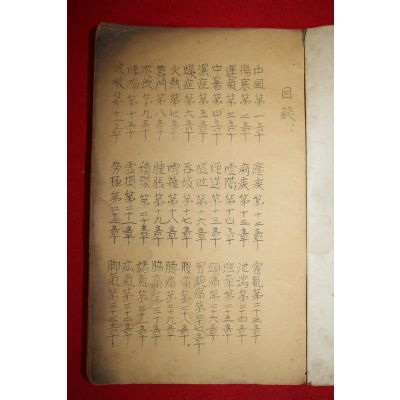 目錄
中風第一章
傷寒第二章
運氣第三章
中暑第四章
濕症第五章
燥症第六章
火熱第七章
第八章
第九章
哮喘第十章
咳嗽第十一章
瘧疾第十二章
痢疾第十三章
噎膈第十四章
呃逆第十五章
嘔吐第十六章
呑酸第十七章
嘈雜第十八章
腫脹第十九章
積聚第二十章
虛損第二十一章
勞極第二十二章
霍亂第二十三章
泄瀉第二十四章
眩暈第二十五章
頭痛第二十六章
胃脘痛第二十七章
腹痛第二十八章
腰痛第二十九章
脇痛第三十章
諸氣第三十一章
疝氣第三十二章
脚氣第三十三章